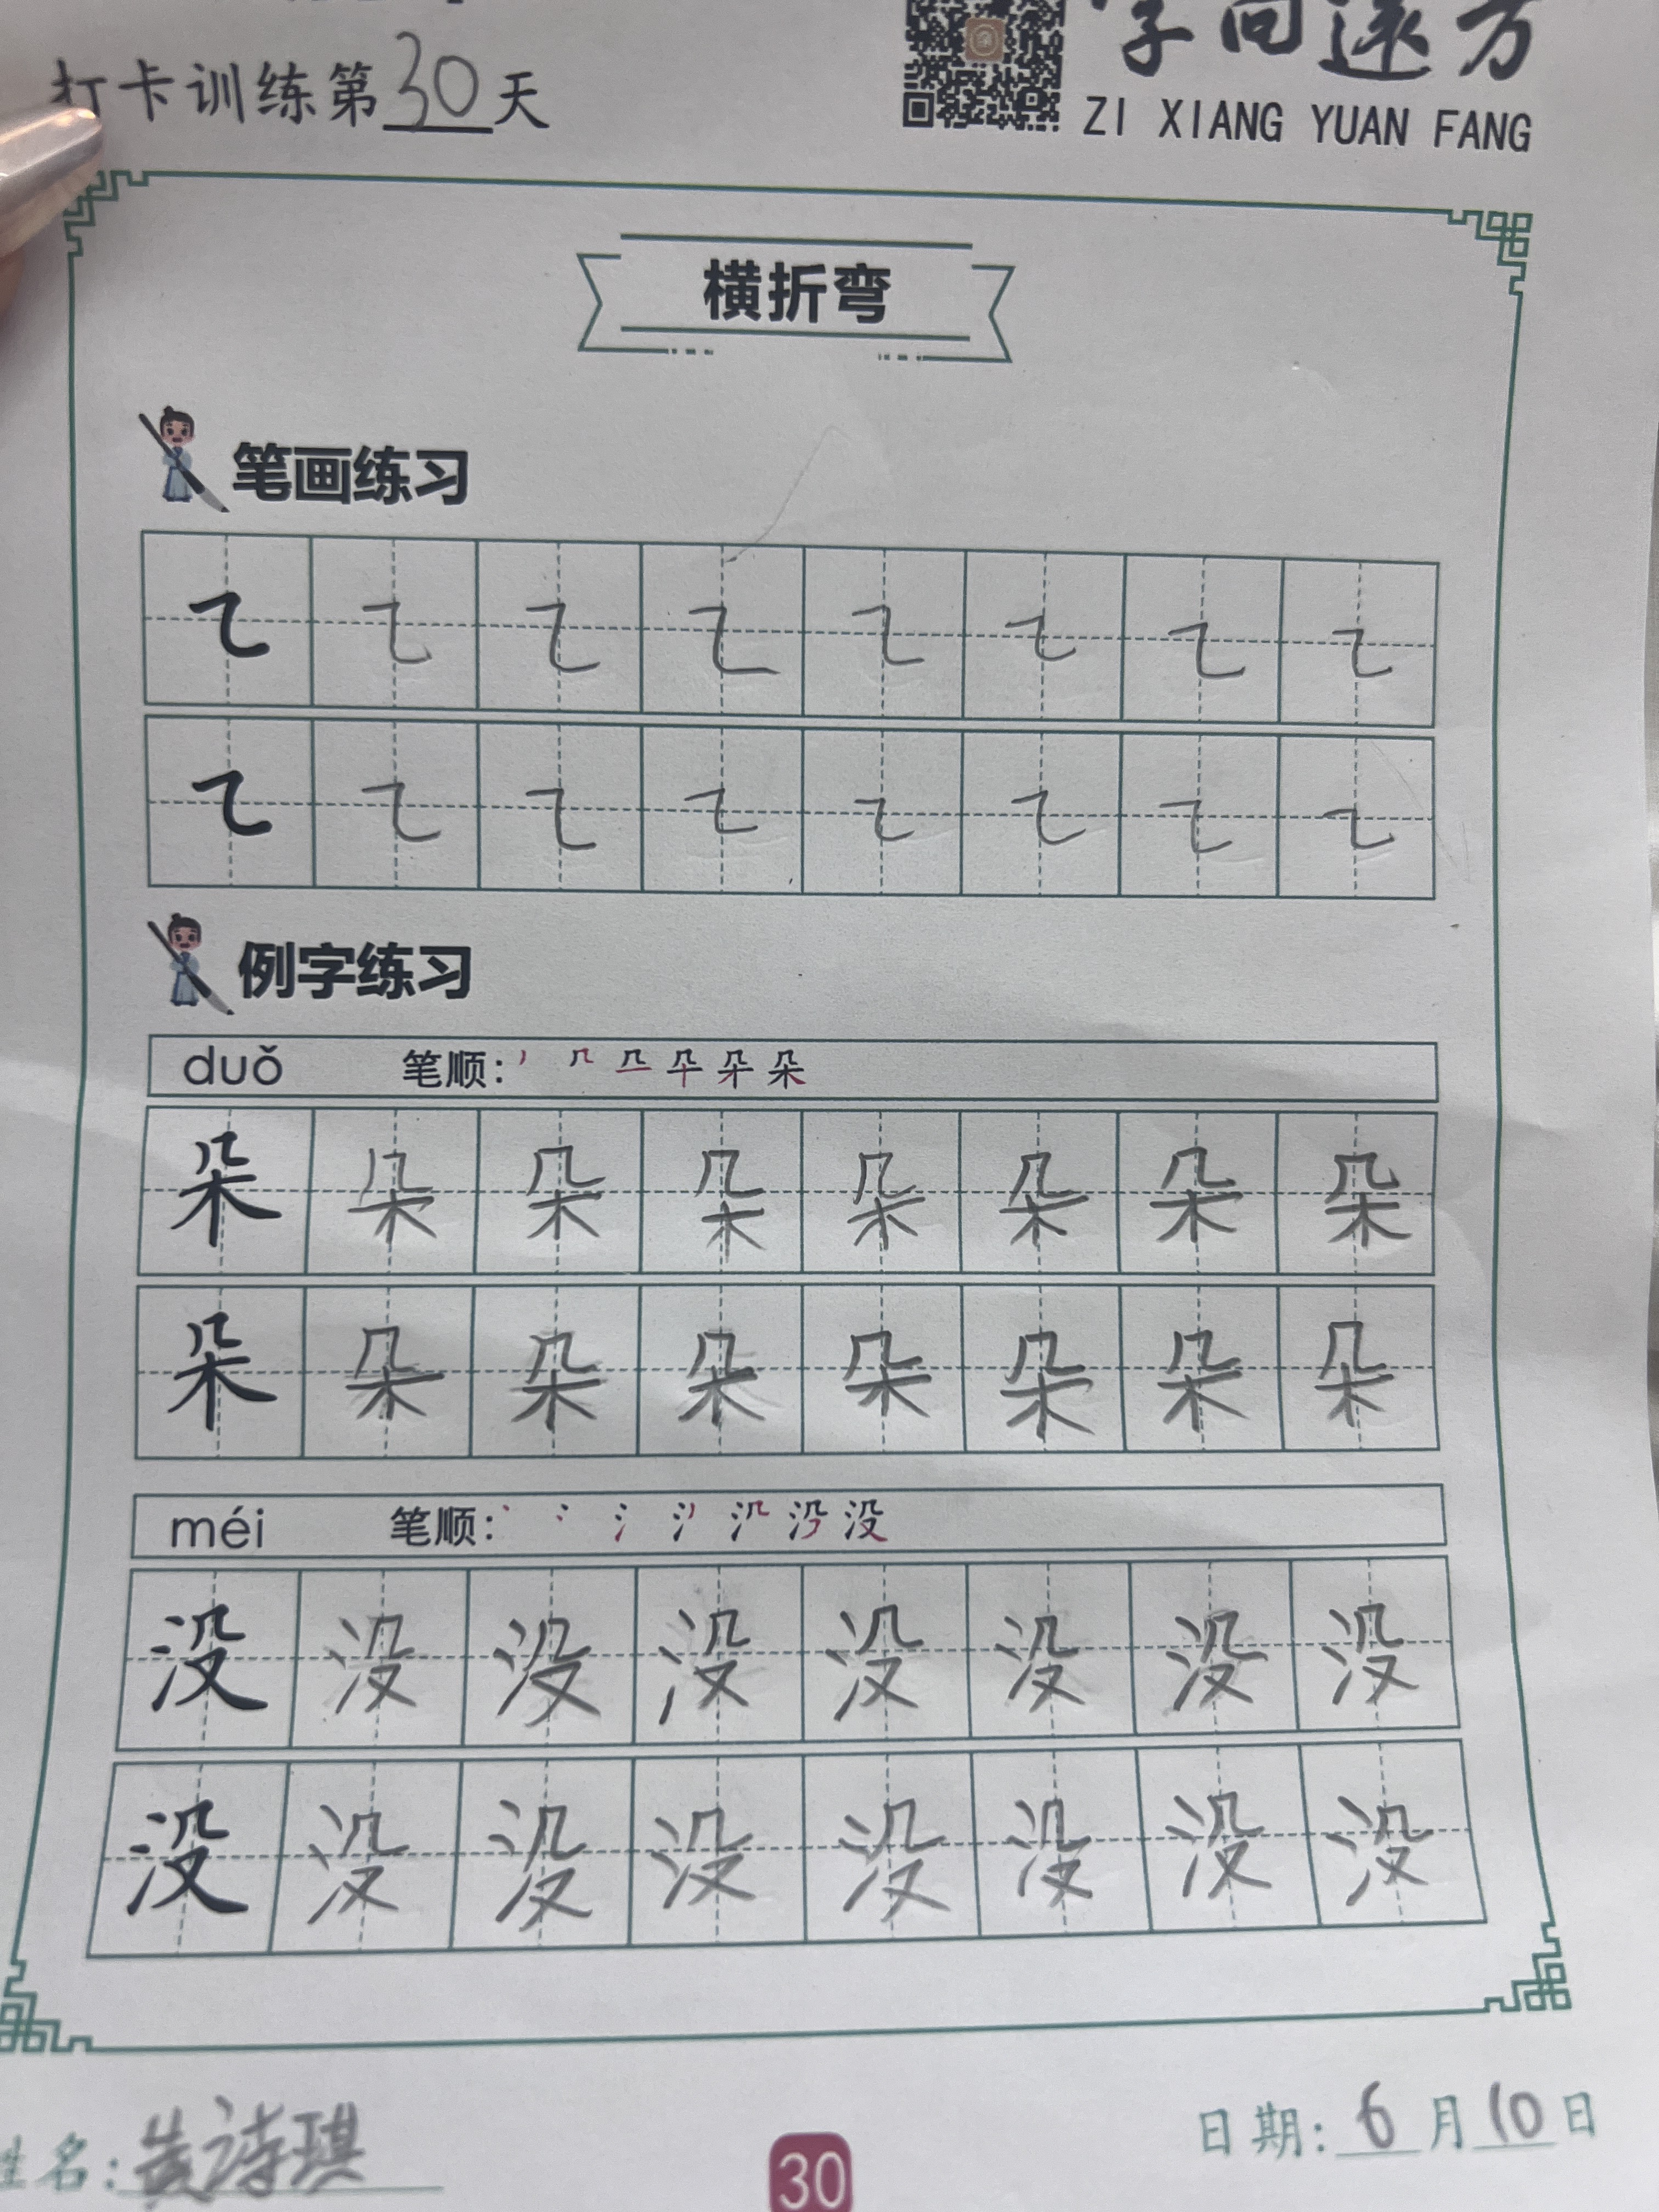 打卡训练第30天
字向远方
ZI XIANG YUAN FANG
横折弯
笔画练习
例字练习
duǒ 笔顺: 朵
朵 朵 朵 朵 朵 朵 朵 朵
朵 朵 朵 朵 朵 朵 朵 朵
méi 笔顺: 没
没 没 没 没 没 没 没 没
没 没 没 没 没 没 没 没
姓名: 诗琪
日期: 6月10日
30